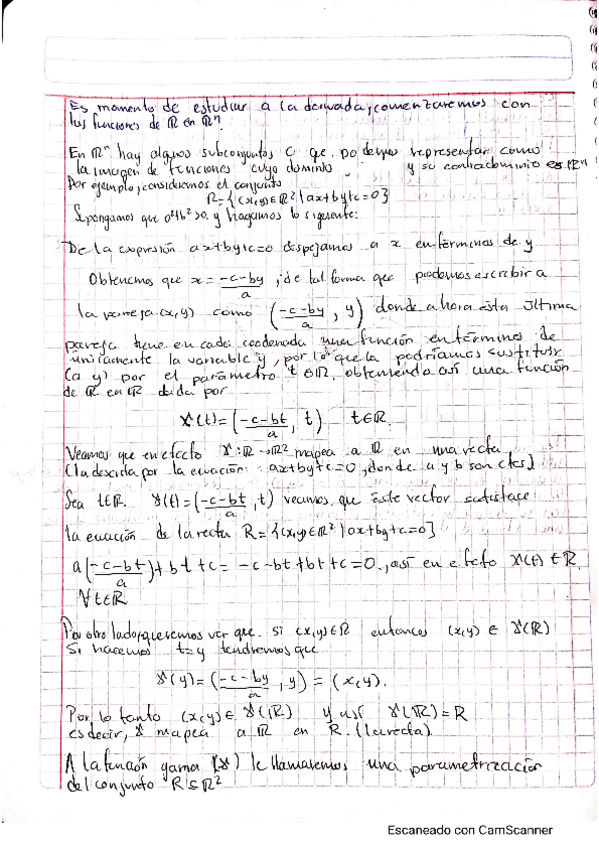 Es momento de estudiar a la derivada, comenzaremos con
las funciones de ℝ en ℝⁿ.
En ℝⁿ hay algunos subconjuntos C que podemos representar como
la imagen de funciones cuyo dominio y su contradominio es ℝⁿ
Por ejemplo, consideremos el conjunto
R={(x,y)∈ℝ² | ax+by+c=0}
Supongamos que a²+b²>0. y hagamos lo siguiente:
De la expresión ax+by+c=0 despejamos a x en términos de y
Obtenemos que x = (-c-by)/a ; de tal forma que podemos escribir a
la pareja (x,y) como ((-c-by)/a , y) donde ahora esta última
pareja tiene en cada coordenada una función en términos de
únicamente la variable y, por lo que la podríamos sustituir
(a y) por el parámetro t∈ℝ, obteniendo así una función
de ℝ en ℝ² dada por
γ(t)=((-c-bt)/a , t) t∈ℝ.
Veamos que en efecto γ:ℝ→ℝ² mapea a ℝ en una recta
(la descrita por la ecuación: ax+by+c=0, donde a y b son ctes)
Sea t∈ℝ. γ(t)=((-c-bt)/a , t) veamos que este vector satisface
la ecuación de la recta R={(x,y)∈ℝ² | ax+by+c=0}
a((-c-bt)/a)+bt+c = -c-bt+bt+c=0., así en efecto γ(t)∈R
∀t∈ℝ
Por otro lado, queremos ver que si (x,y)∈R entonces (x,y) ∈ γ(ℝ)
Si hacemos t=y tendremos que
γ(y)=((-c-by)/a , y) = (x,y).
Por lo tanto (x,y)∈ γ(ℝ) y así γ(ℝ)=R
es decir, γ mapea a ℝ en R. (la recta)
A la función gama (γ) le llamaremos una parametrización
del conjunto R⊆ℝ²
Escaneado con CamScanner